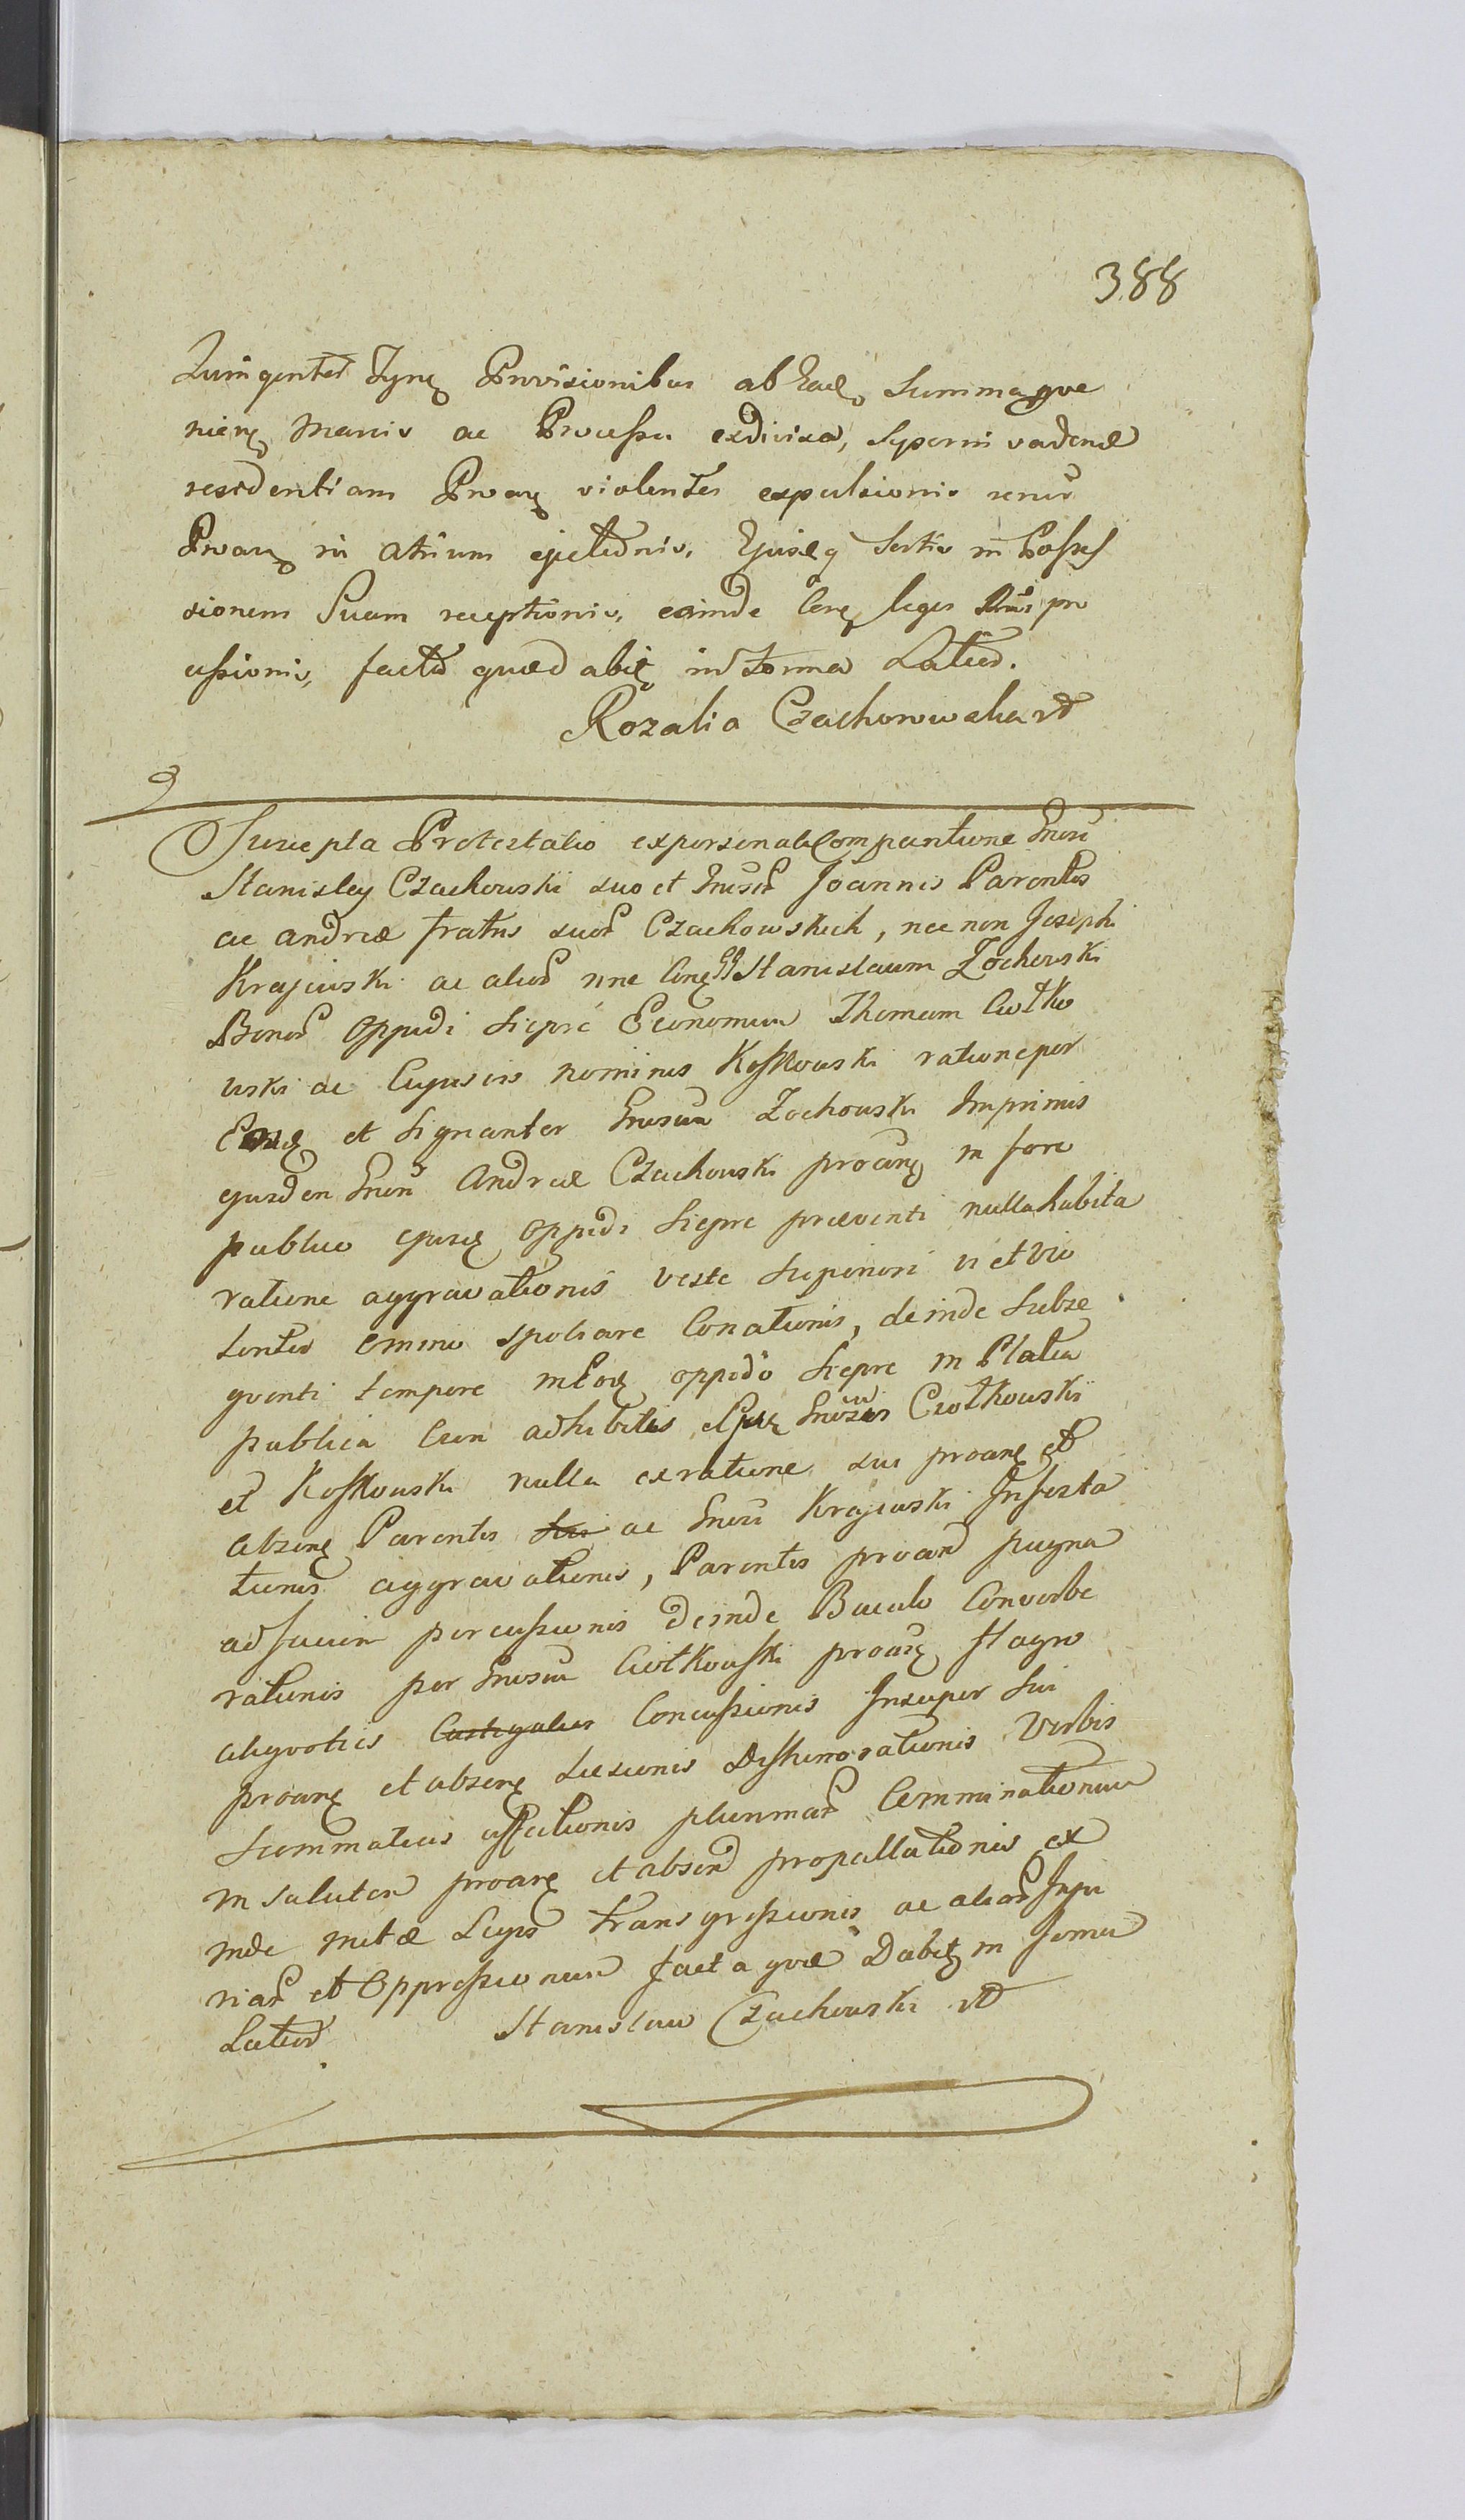 388
Quingentor Tynę Provisionibus ab Eadę Summa prove
nienę Manis ac Processu exdivisa, Syperin vadendæ
residentiam Proarę violenter expulsionis renũ
Proarę in atrium ejectionis, Ejusdę Sortis in Posses
sionem Suam receptionis, eainde Cerę leges pro
cussionis, facta quæ dabit, in Forma Latiod.
Rozalia Czachorowska rd
Suscepta Protestatio expersonali Comparitione Gnosi
Stanisley Czachowski suo et Gnosor Joannis Parentis
ac andreæ fratris suor Czachowskich, nec non Josephi
Krajewski ac alior nne Conę GG Stanislaum Zochowski
Bonor Oppidi Siepré Economum Thomam Ciołko
wski ac Cujusvis nominis Koskowski ratione per
Eosdę et Signanter Gnosum Zochowski Imprimis
ejusdem Gnosi Andreæ Czachowski proanę in foro
publico ejusdę Oppidi Siepre præventi nulla habita
ratione aggravationis Veste Superiori vi et vio
lenter omnino Spoliare Conationis, deinde Subse
quenti tempore in Eodę oppido Siepre in Platea
publica Cum adhibitis sibi Gnosis Ciołkowski
et Koskowski nulla exratione sui proanę et
absenę Parentis ac Gnosi Krajewski Infesta
tionis aggravationis, Parentis proand pugna
ad faciem percussionis deinde Baculo Converbe
rationis per Gnosum Ciołkowski proanę flagro
aliquoties Castigatus Concussionis Insuper Sui
proanę et absenę Læsionis Dishonorationis Verbis
Scommaticis affectionis plurimar Comminationum
in Salutem proanę et absend propallationis ex
inde metæ Legis transgressionis ac aliar Inju
riar et Oppressionum facta quæ Dabit in Forma
Latiod
Stanisław Czachowski rd